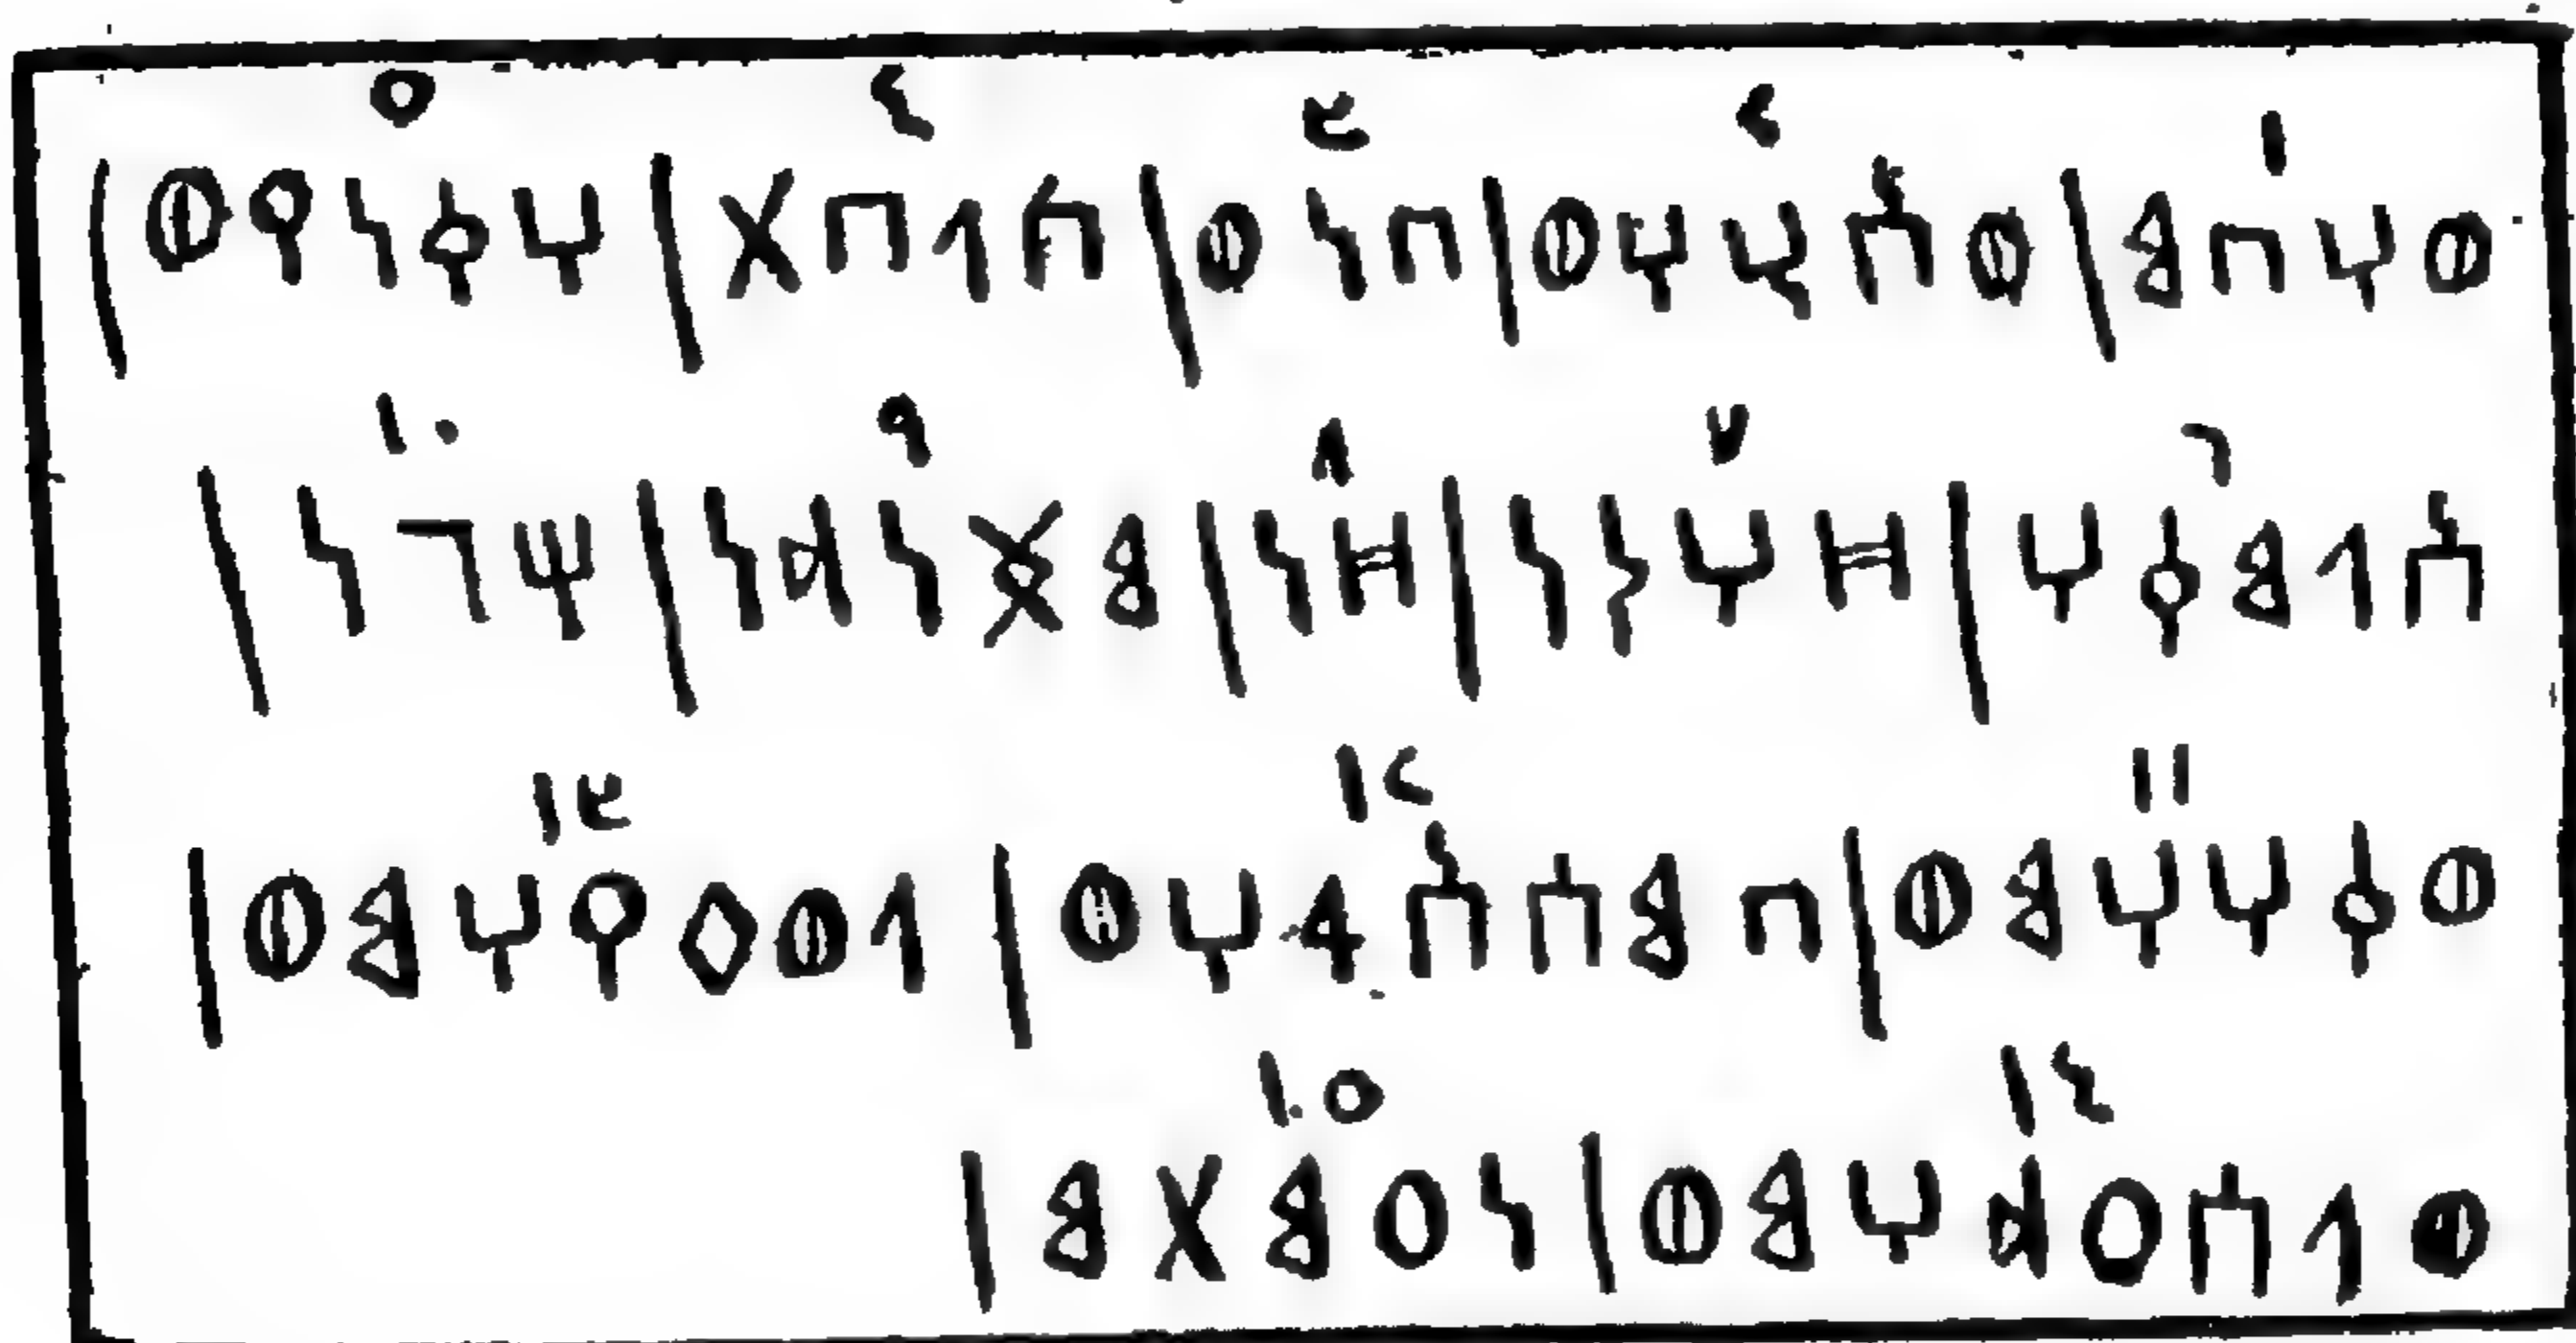 ١ ٢ ٣ ٤ ٥
𐩥𐩠𐩨𐩣 | 𐩥𐩱𐩭𐩠𐩥 | 𐩨𐩬𐩥 | 𐩫𐩡𐩨𐩩 | 𐩠𐩤𐩬𐩺𐩥 |
٦ ٧ ٨ ٩ ١٠
𐩱𐩡𐩣𐩤𐩠 | 𐩹𐩠𐩧𐩬 | 𐩹𐩬 | 𐩣𐩯𐩬𐩵𐩬 | 𐩢𐩴𐩬 |
١١ ١٢ ١٣
𐩥𐩤𐩠𐩠𐩣𐩥 | 𐩨𐩣𐩪𐩱𐩡𐩠𐩥 | 𐩡𐩥𐩰𐩺𐩠𐩣𐩥 |
١٤ ١٥
𐩥𐩡𐩪𐩲𐩵𐩠𐩣𐩥 | 𐩬𐩲𐩣𐩩𐩣 |